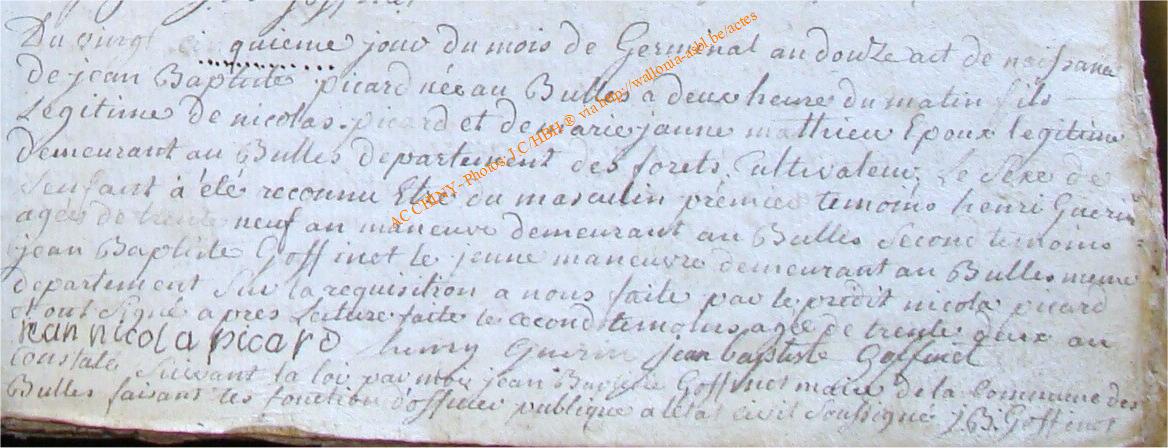 Du vingt cinquieme jour du mois de Germinal an douze act de naissance
de jean Baptiste picard née au Bulles a deux heure du matin fils
Legitime de nicolas picard et de marie janne mathieu Epoux legitime
demeurant au Bulles departement des forets, Cultivateur, Le Sexe de
lenfant à été reconnu Etre du masculin prémier temoins henri Guerin
agée de trente neuf an maneuvre demeurant au Bulles Second temoins
jean Baptiste Goffinet le jeune maneuvre demeurant au Bulles meme
departement Sur la requisition a nous faite par le prédit nicola picard
et ont Signé apres Lecture faite le second temoins agée de trente deux an
jean nicola picard henry Guerin jean baptiste Goffinet
Constaté Suivant la loi par moi jean Baptiste Goffinet maire de la Commune des
Bulles faisant les fonction d'officier publique a letat civil Soussigné J.B. Goffinet
AC CHINY - Photos JC/HBH ® via http://wallonia-asbl.be/actes